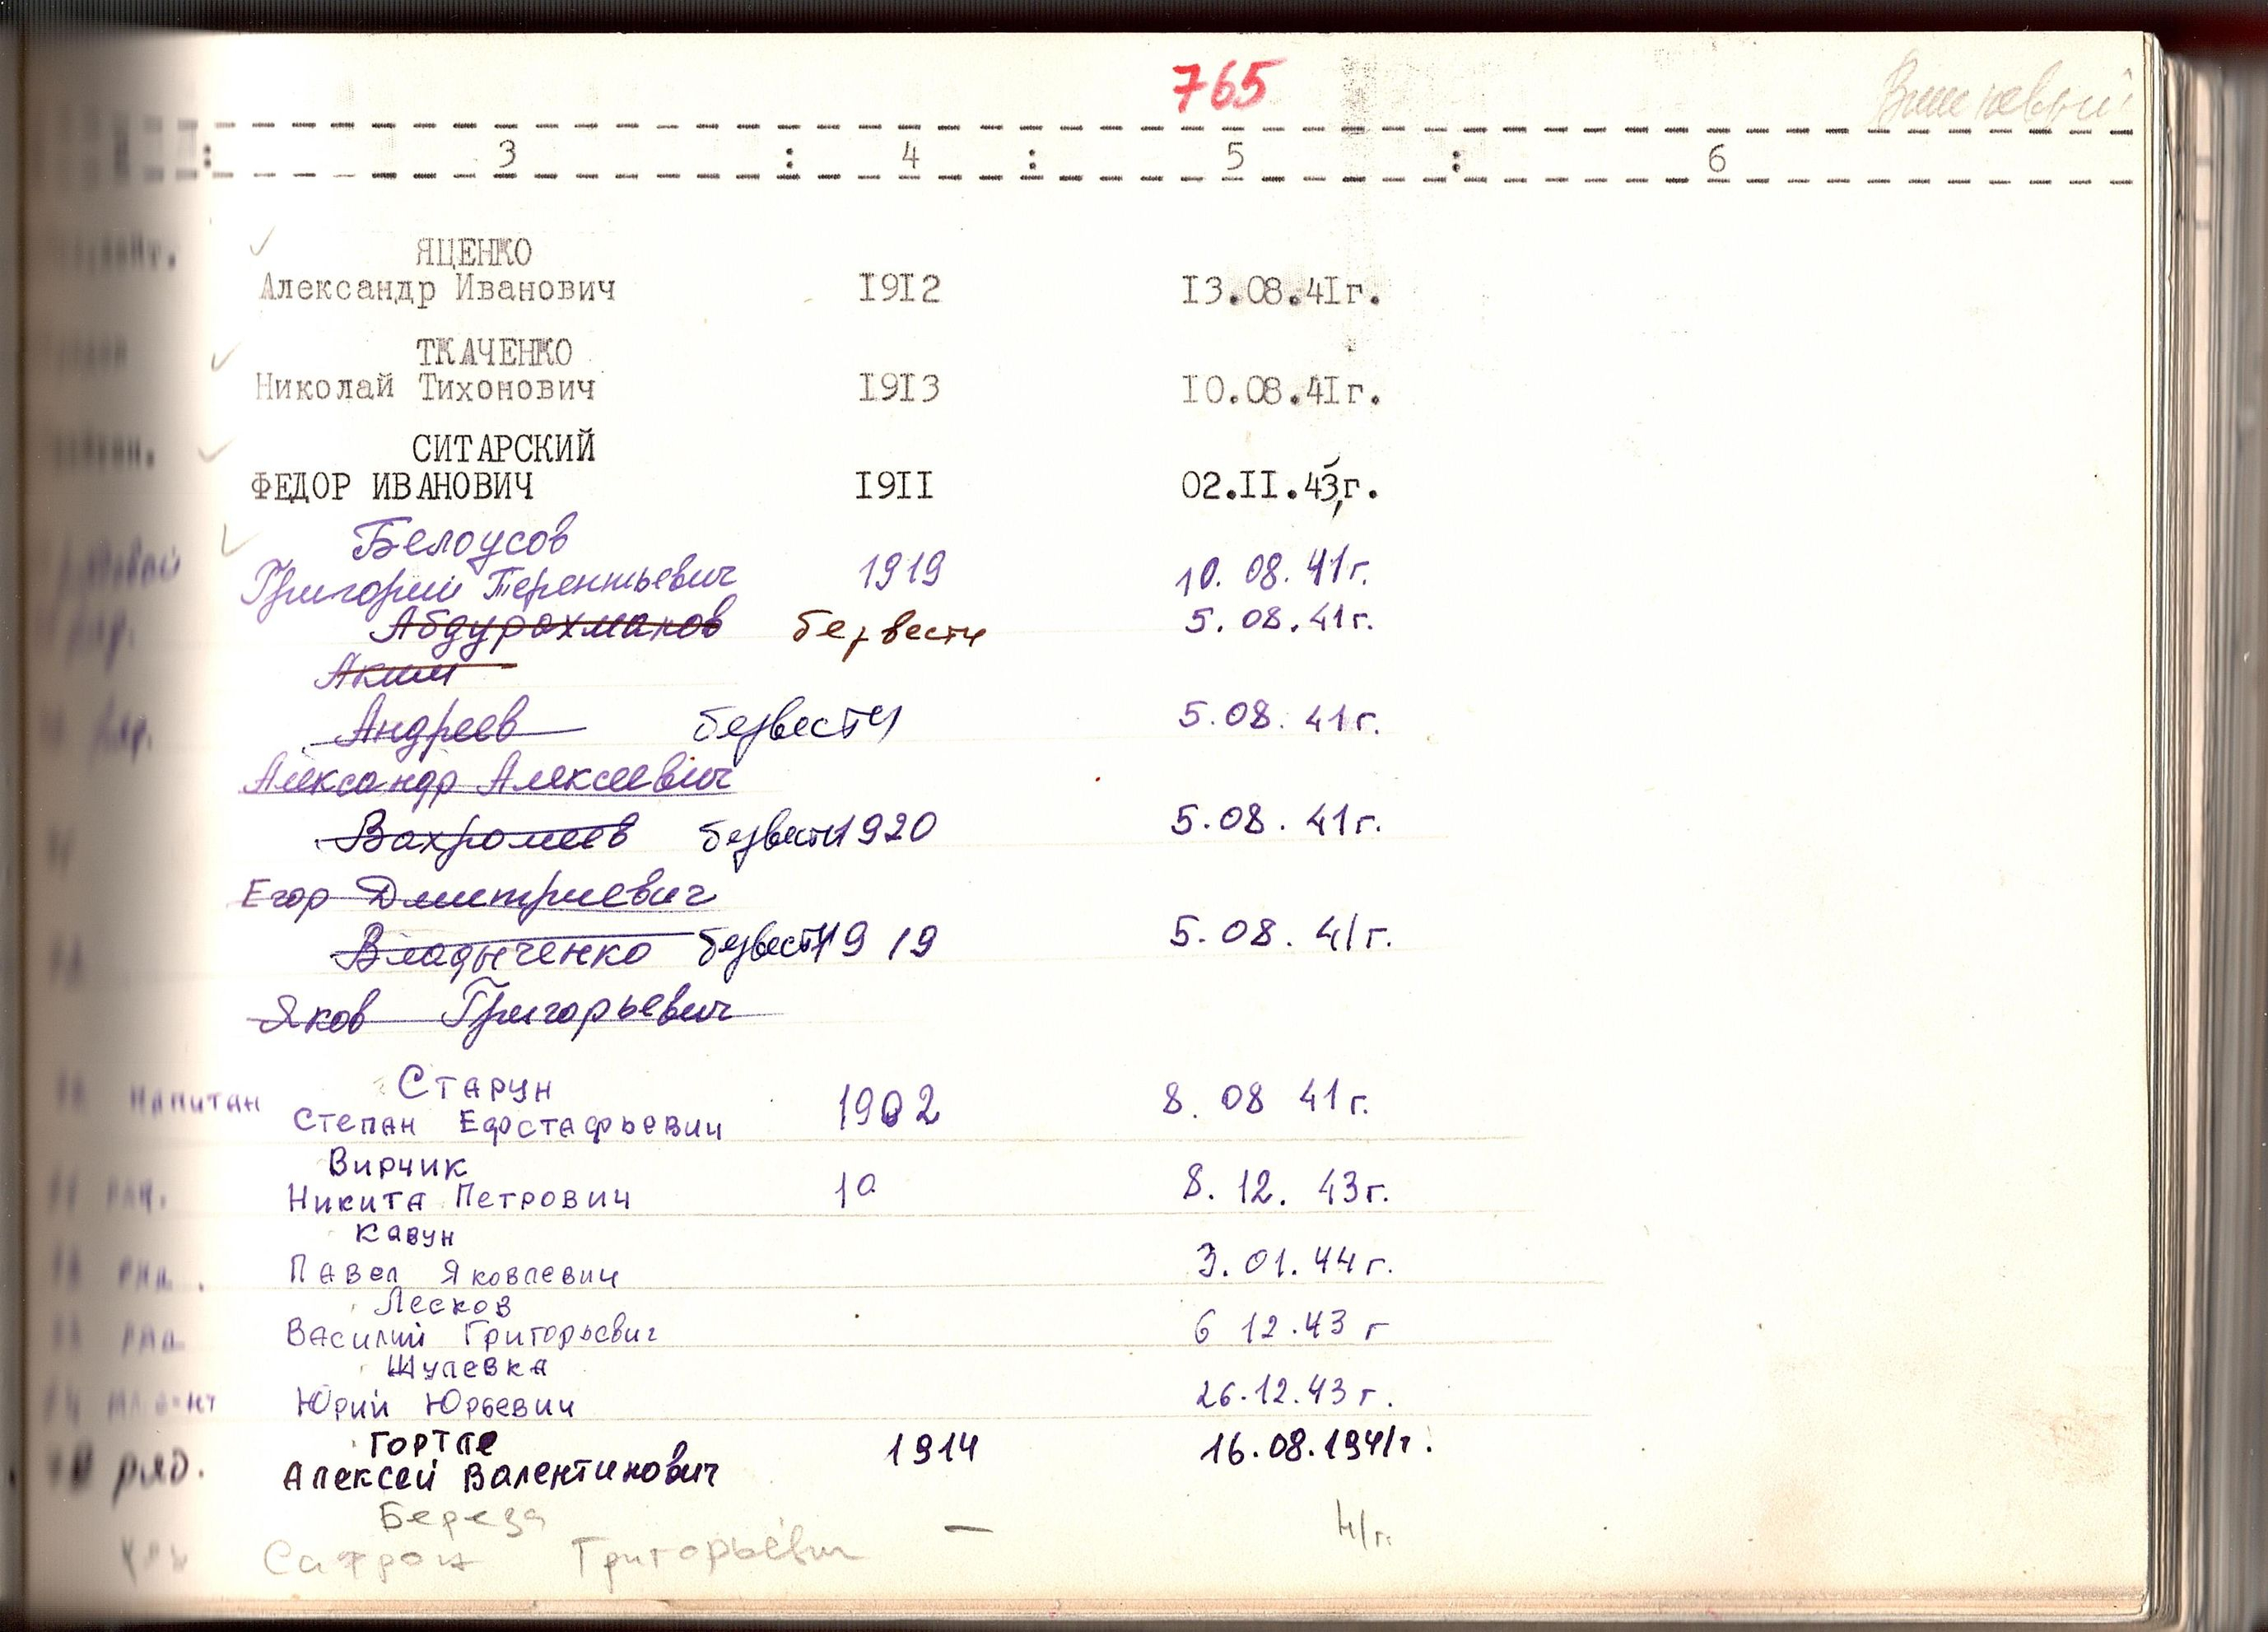 765
3 : 4 : 5 : 6
ЯЦЕНКО
Александр Иванович 1912 13.08.41г.
ТКАЧЕНКО
Николай Тихонович 1913 10.08.41г.
СИТАРСКИЙ
ФЕДОР ИВАНОВИЧ 1911 02.11.43г.
Белоусов
Григорий Терентьевич 1919 10.08.41г.
Абдурахманов безвести 5.08.41г.
Аким
Андреев безвести 5.08.41г.
Александр Алексеевич
Вахромеев безвести 1920 5.08.41г.
Егор Дмитриевич
Владыченко безвести 1919 5.08.41г.
Яков Григорьевич
Старун
капитан Степан Ефстафьевич 1902 8.08 41г.
Вирчик
Никита Петрович 19 8.12.43г.
Кавун
Павел Яковлевич 3.01.44г.
Лесков
Василий Григорьевич 6 12.43 г
Шулевка
Юрий Юрьевич 26.12.43г.
Гортле
ряд. Алексей Валентинович 1914 16.08.1941г.
Береза
Сафрон Григорьевич — 41г.